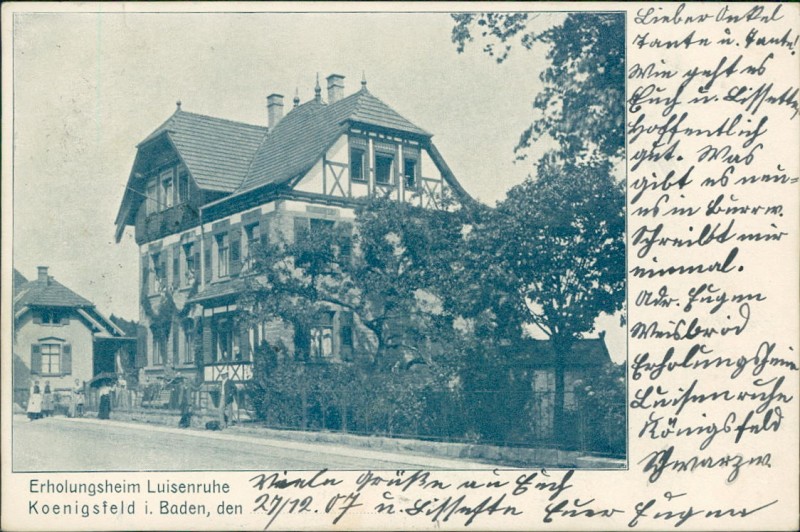 Lieber Onkel
Tante u. Tante!
Wie geht es
Euch u. Lissette,
hoffentlich
gut. Was
gibt es neu=
es in Burrw.
Schreibt mir
einmal.
Adr. Eugen
Weisbrod
Erholungsheim
Luisenruhe
Königsfeld
Schwarzw.
Erholungsheim Luisenruhe
Koenigsfeld i. Baden, den
Viele Grüße an Euch
27/12. 07 u. Lissette Euer Eugen